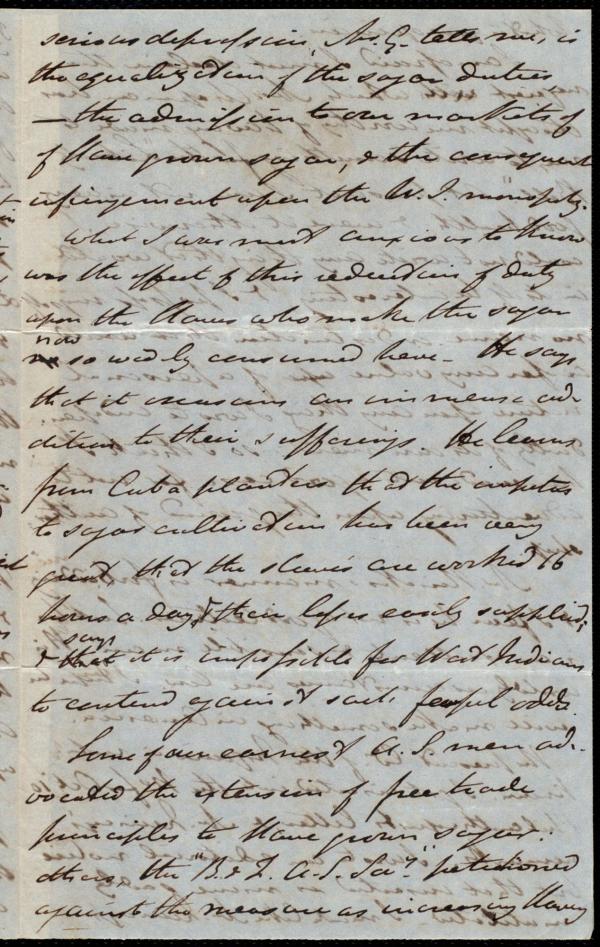 serious depression, Mr. G. tells me, is
the equalization of the sugar duties,
— the admission to our markets of
of slave grown sugar, & the consequent
infringement upon the W. I. monopoly.
What I was most anxious to know
was the effect of this reduction of duty
upon the slaves who make the sugar
now
so widely consumed here - He says
that it occasions an immense ad-
dition to their sufferings. He learns
from Cuba planters that the impetus
to sugar cultivation has been very
great that the slaves are worked 16
hours a day, & their losses easily supplied;
says
& that it is impossible for West Indians
to contend against such fearful odds.
Some of our earnest A. S. men ad-
vocated the extension of free trade
principles to slave grown sugar:
others, the "B. & F. A-S. Soc." petitioned
against the measure as increasing slavery